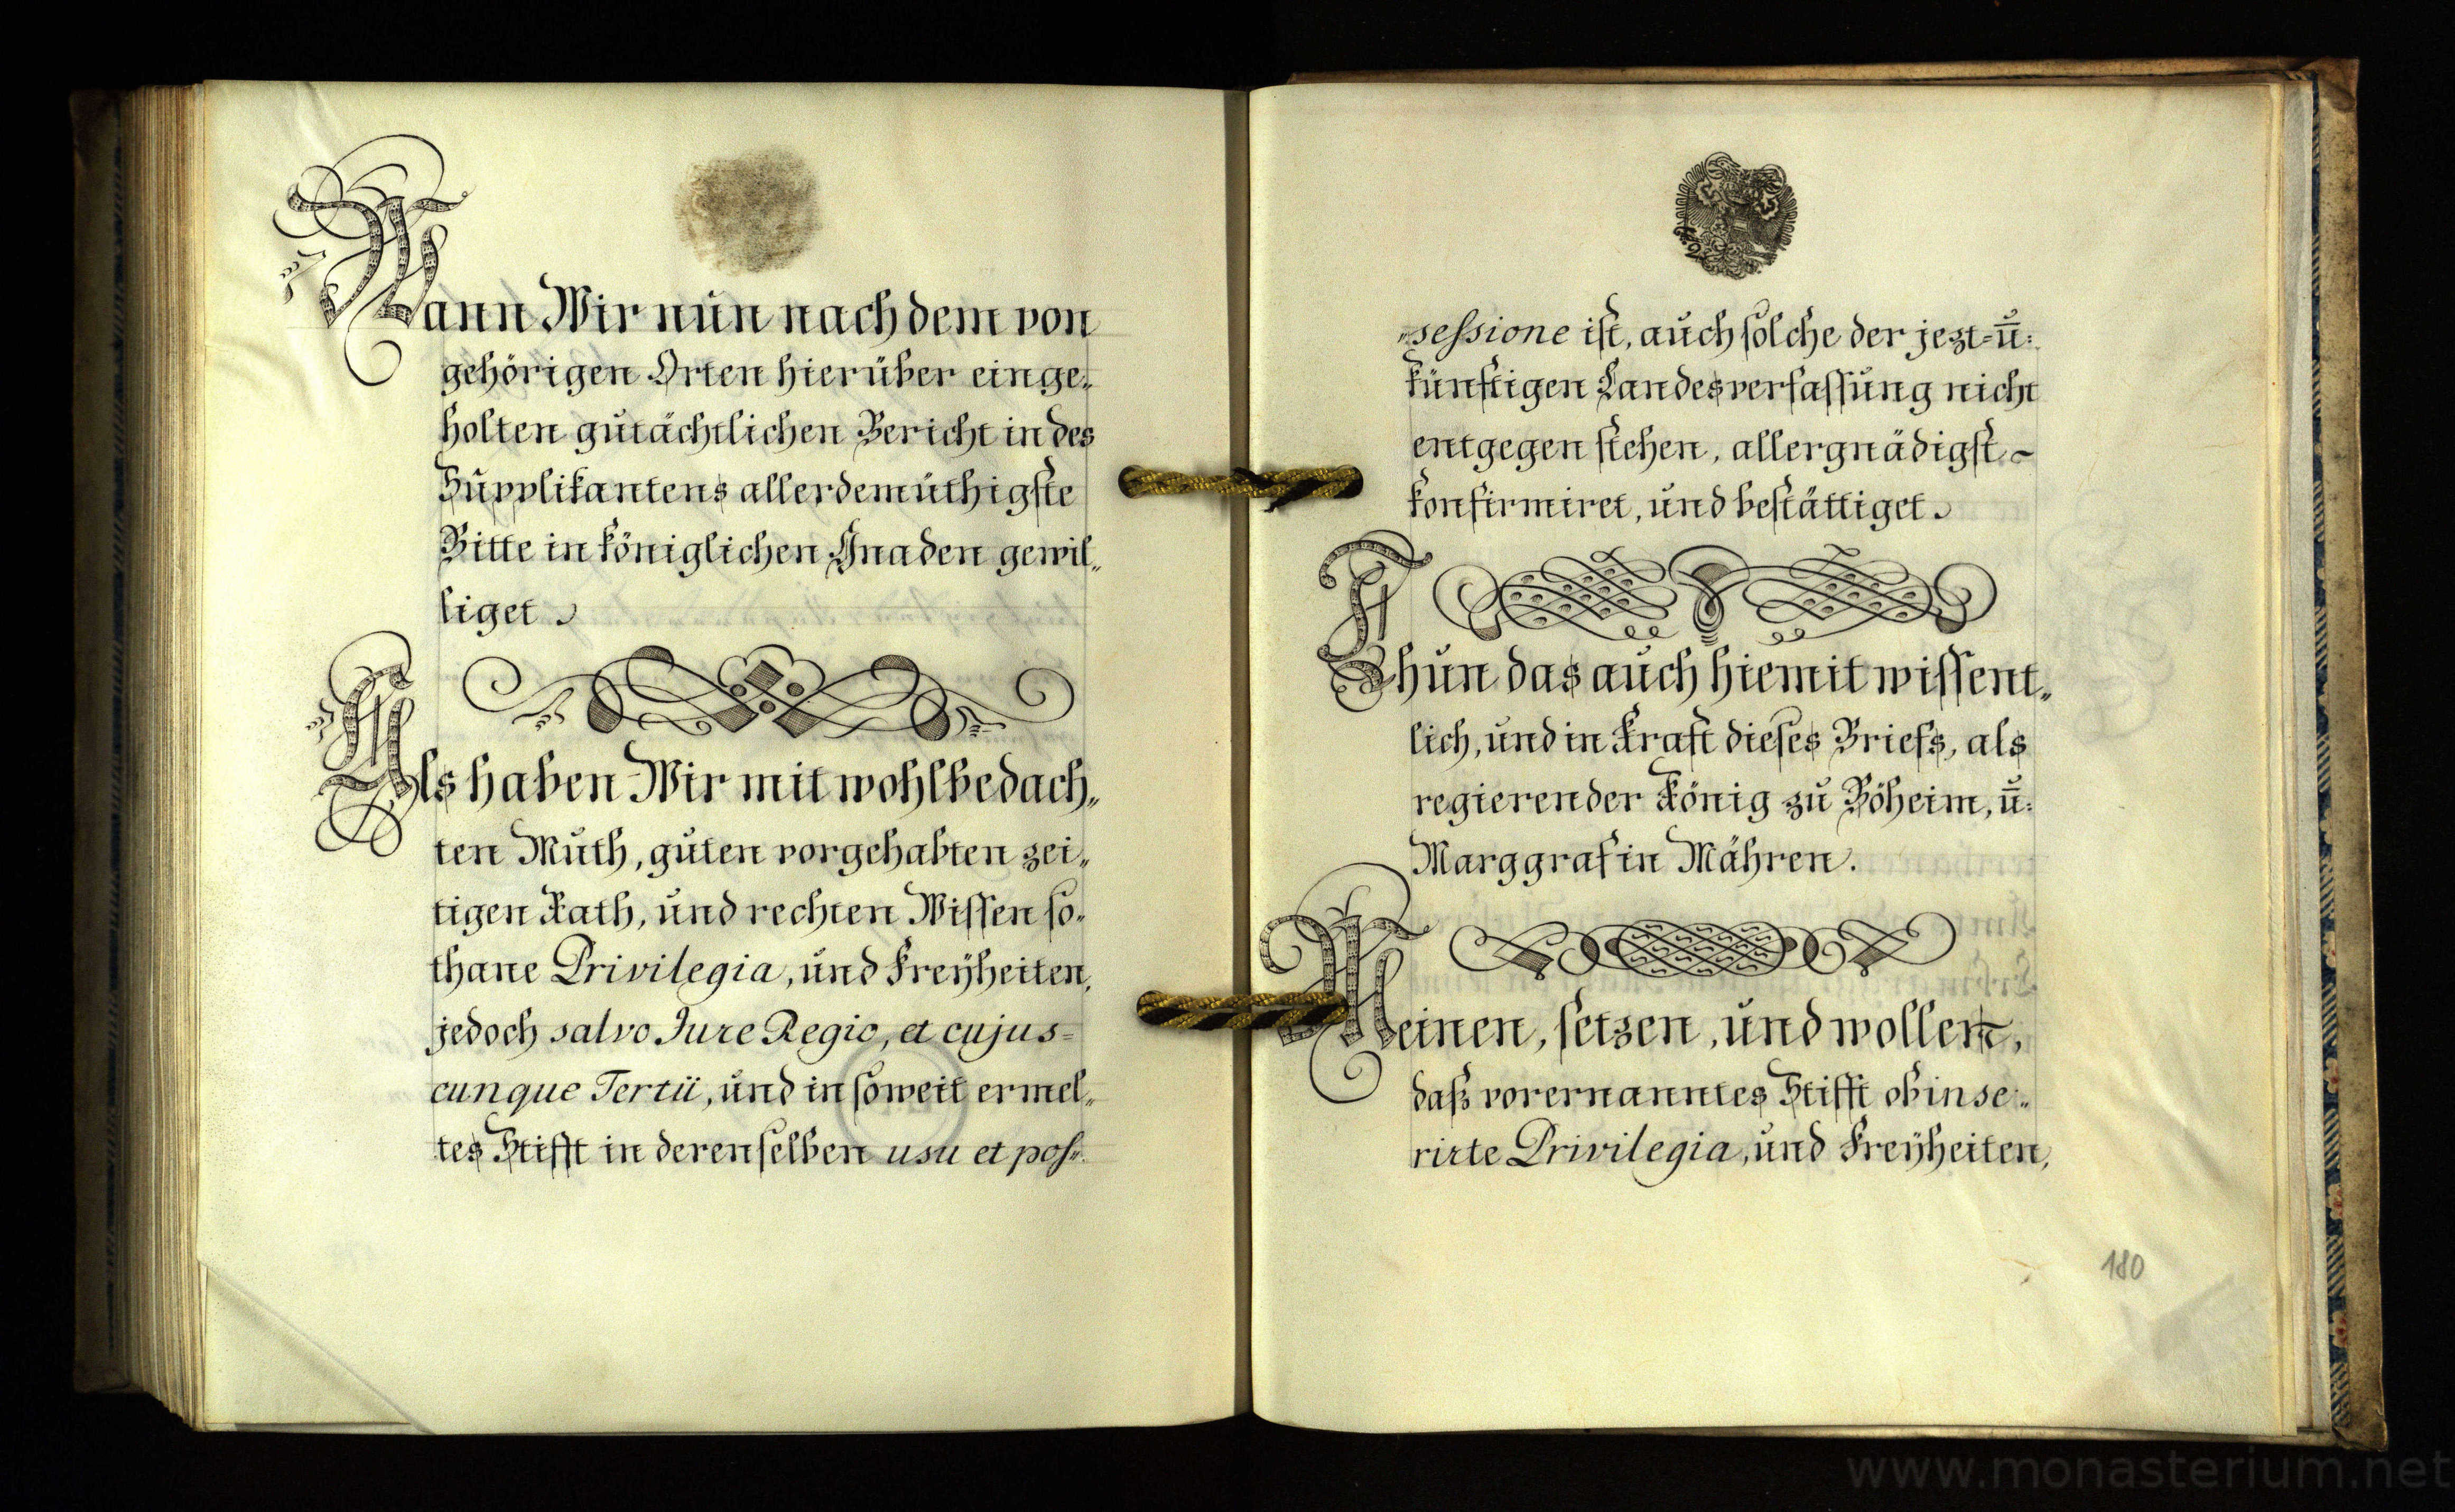 Wann Wir nŭn nach dem von
gehörigen Orten hierüber einge„
holten gŭtächtlichen Bericht in des
Sŭpplikantens allerdemüthigste
Bitte in königlichen Gnaden gewil„
liget.
Als haben Wir mit wohlbedach„
ten Mŭth, gŭten vorgehabten zei„
tigen Rath, ŭnd rechten Wissen so„
thane Privilegia, ŭnd Freÿheiten,
jedoch salvo Jure Regio, et cujus=
cunque Tertii, ŭnd in soweit ermel„
tes Stifft in derenselben usu et pos„
„sessione ist, aŭch solche der jezt=ŭ̄:
künftigen Landesverfassŭng nicht
entgegen stehen, allergnädigst
konfirmiret, ŭnd bestättiget.
Thŭn das aŭch hiemit wissent„
lich, ŭnd in Kraft dieses Briefs, als
regierender König zŭ Böheim, ŭ̄:
Marggraf in Mähren.
Meinen, setzen, ŭnd wollen,
daß vorernanntes Stifft obinse„
rirte Privilegia, ŭnd Freÿheiten,
180
www.monasterium.net